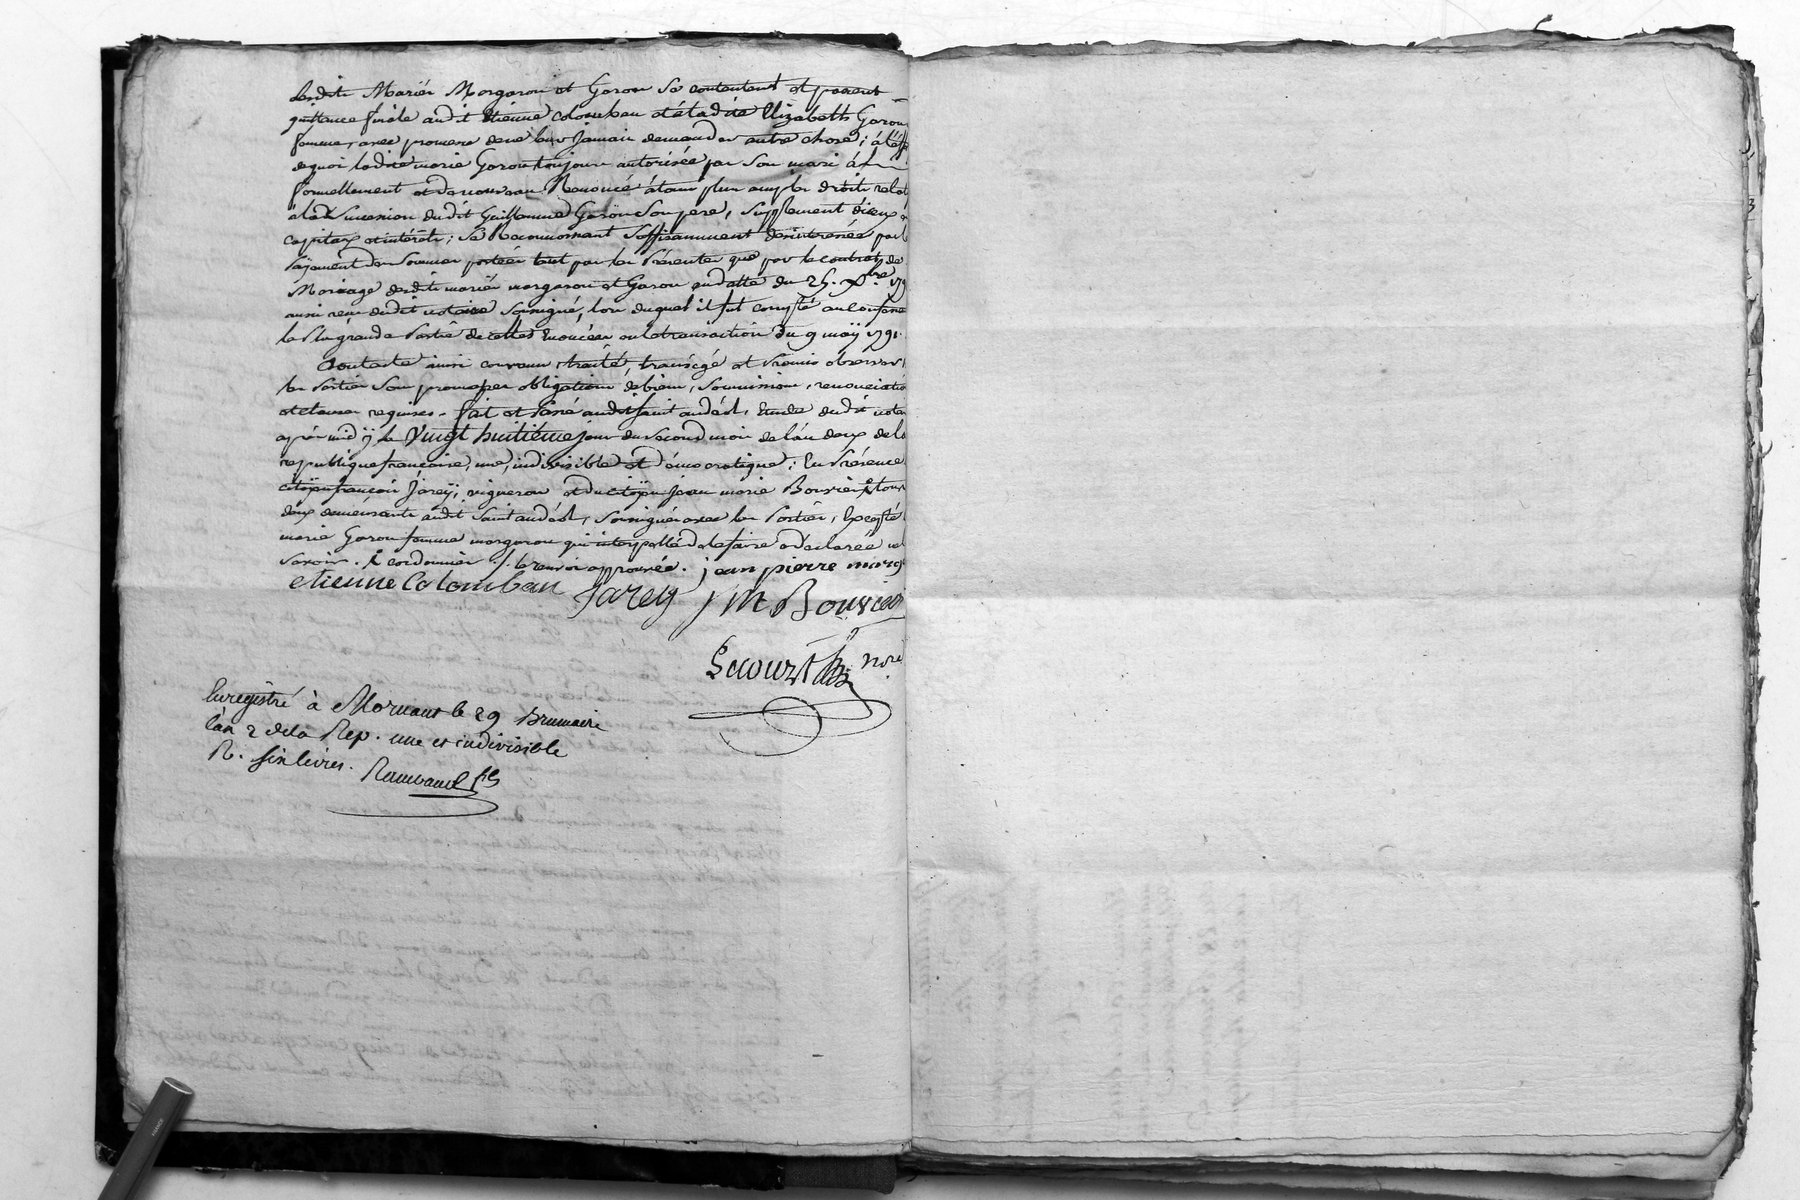 lesdits Mariés Morgaron et Garon se contentent et passent
quittance finale audit Etienne Colomban et à ladite Elizabeth Garon
femme, avec promesse de ne leur jamais demander autre chose ; à l'effet
de quoi ladite marie Garon toujours autorisée par son mari à
formellement et de nouveau Renoncé à tous plus amples droits relat
à la Succession dudit Guillaume Garon Son pere, Supplement d'iceux
capitaux et intérêts ; Se Reconnoissant Suffisamment desintéressée par le
Payement des Sommes portées tant par les Présentes que par le contrat de
Mariage desdits mariés morgaron et Garon en datte du 25. Xbre 179
aussi reçu dudit notaire Soussigné, lors duquel il fut compté
la Plus grande Partie de celles énoncées en la transaction du 9 maÿ 1791.
Dont acte ainsi convenu, traité, transigé et Promis observer
les Parties Sous obligations de biens, Soumissions, renonciations
et clauses requises. fait et Passé audit Saint andéol, Etude dudit notaire
après midÿ le Vingt huitième jour du Second mois de l'an deux de la
republique françoise, une, indivisible et démocratique ; En Présence
citoÿen françois Jareÿ, vigneron et du citoÿen jean marie Bouvier tous
deux demeurants audit Saint andéol, Soussignés avec les Parties, Excepté
marie Garon femme morgaron qui interpellée de le faire a déclaré ne
Savoir. cordonnier le renvoi approuvé. jean pierre morg
etienne Colomban Jarey j m Bouvier
Lecourt nore
Enregistré à Mornant le 29 Brumaire
l'an 2 de la Rep. une et indivisible
R. six livres. Rambaud fils